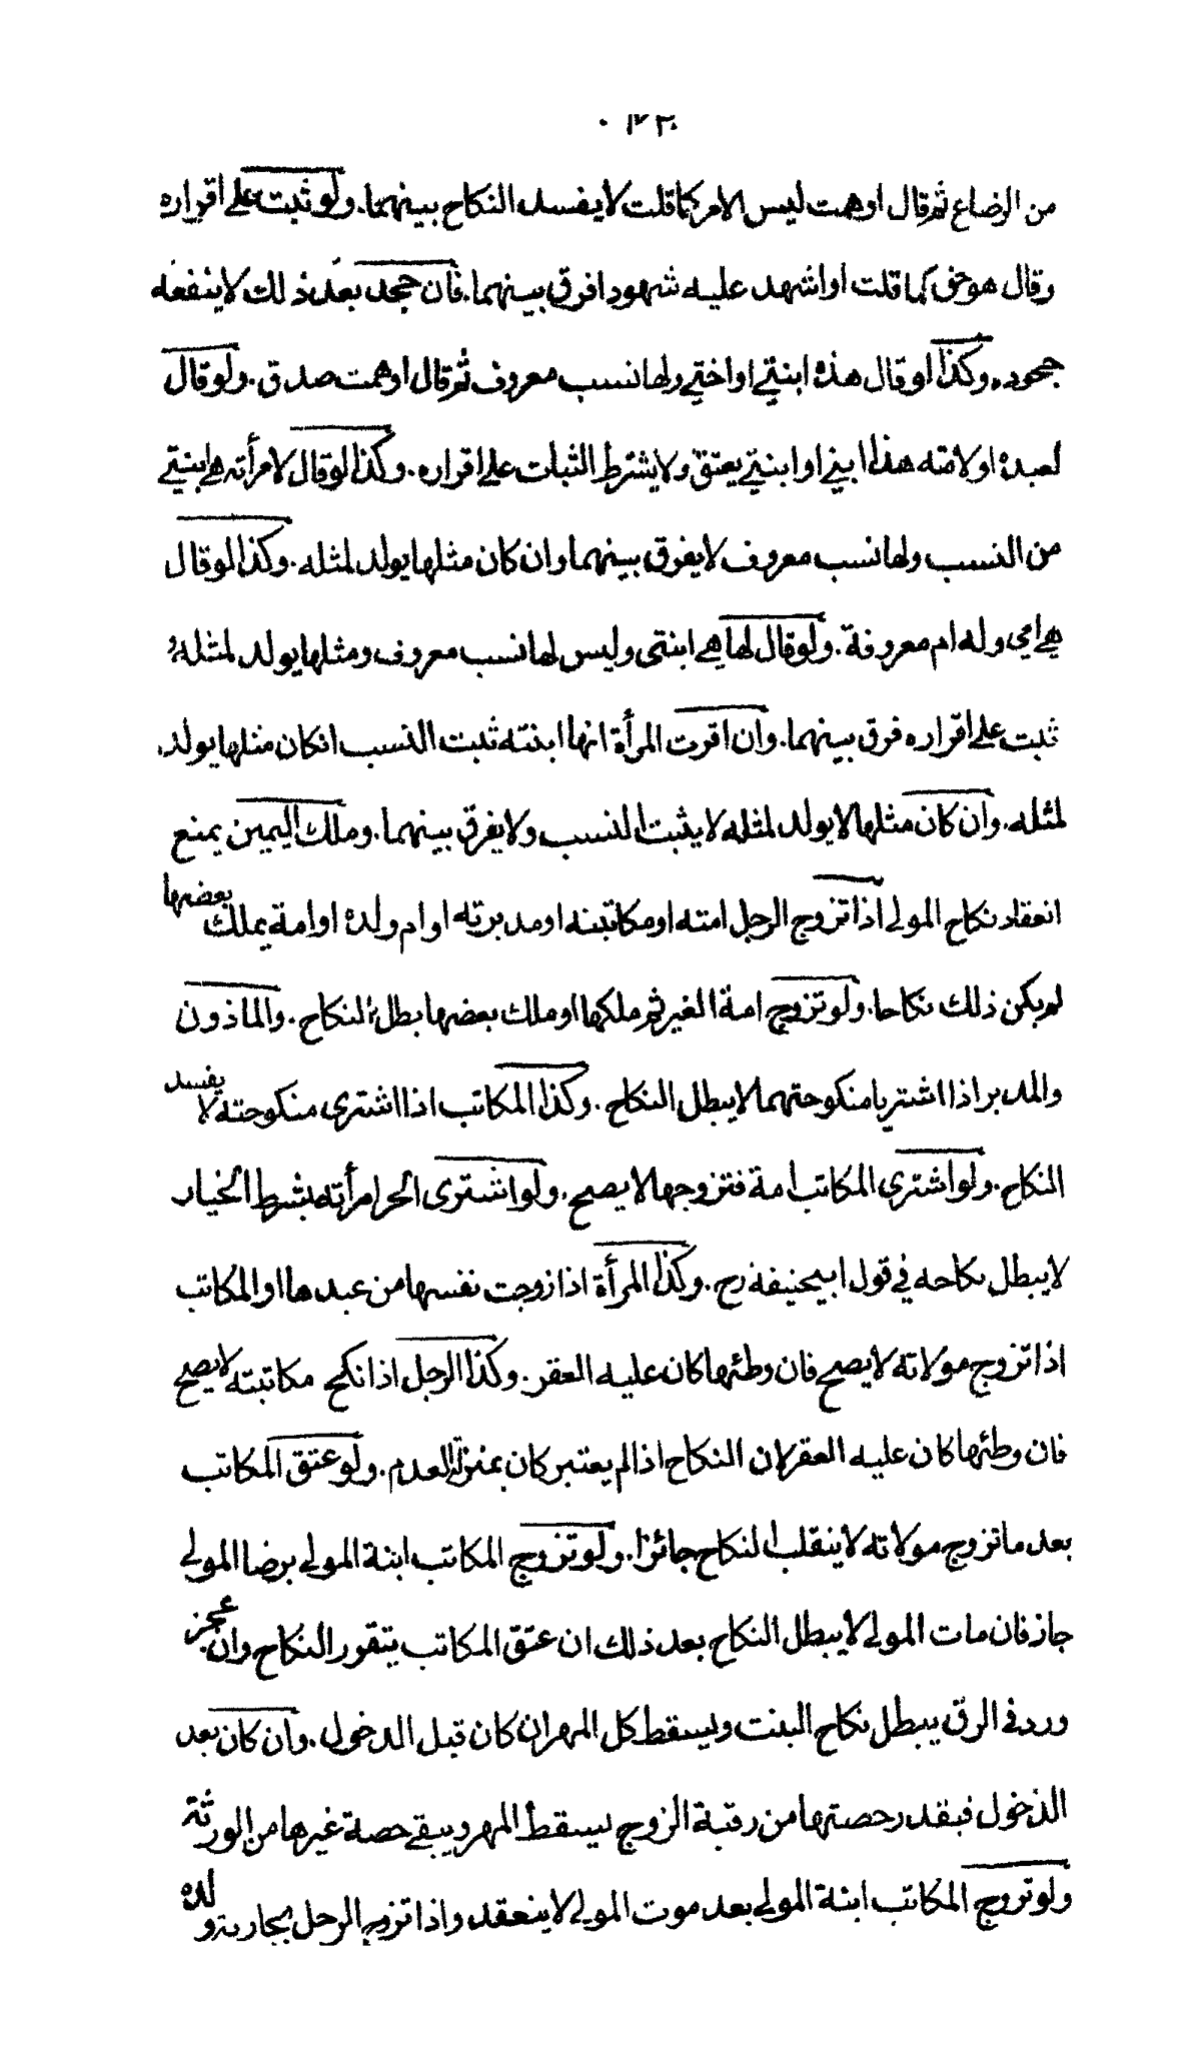 من الرضاع ثم قال اوهمت ليس الامر كما قلت لا يفسد النكاح بينهما. ولو ثبت على اقراره
وقال هو حق كما قلت او اشهد عليه شهودا فرق بينهما. فان جحد بعد ذلك لا ينفعه
جحوده. وكذا لو قال هذه ابنتي او اختي ولها نسب معروف ثم قال اوهمت صدق. ولو قال
لعبده او لامته هذا ابني او ابنتي يعتق ولا يشترط الثبات على اقراره. وكذا لو قال لامرأته هي ابنتي
من النسب ولها نسب معروف لا يفرق بينهما وان كان مثلها يولد لمثله. وكذا لو قال
هي امي وله ام معروفة. ولو قال لها هي ابنتي وليس لها نسب معروف ومثلها يولد لمثله و
ثبت على اقراره فرق بينهما. وان اقرت المرأة انها ابنته ثبت النسب ان كان مثلها يولد
لمثله. وان كان مثلها لا يولد لمثله لا يثبت النسب ولا يفرق بينهما. وملك اليمين يمنع
انعقاد نكاح المولى اذا تزوج الرجل امته او مكاتبته او مدبرته او ام ولده او امة يملك بعضها
لم يكن ذلك نكاحا. ولو تزوج امة الغير ثم ملكها او ملك بعضها بطل النكاح. والماذون
والمدبر اذا اشتريا منكوحتهما لا يبطل النكاح. وكذا المكاتب اذا اشترى منكوحته لا يفسد
النكاح. ولو اشترى المكاتب امة فتزوجها لا يصح. ولو اشترى الحر امرأته بشرط الخيار
لا يبطل نكاحه في قول ابيحنيفة رح. وكذا المرأة اذا زوجت نفسها من عبدها او المكاتب
اذا تزوج مولاته لا يصح فان وطئها كان عليه العقر. وكذا الرجل اذا نكح مكاتبته لا يصح
فان وطئها كان عليه العقر لان النكاح اذا لم يعتبر كان بمنزلة العدم. ولو عتق المكاتب
بعد ما تزوج مولاته لا ينقلب النكاح جائزا. ولو تزوج المكاتب ابنة المولى برضا المولى
جاز فان مات المولى لا يبطل النكاح بعد ذلك ان عتق المكاتب يتقرر النكاح وان عجز
ورد في الرق يبطل نكاح البنت ويسقط كل المهر ان كان قبل الدخول. وان كان بعد
الدخول فبقدر حصتها من رقبة الزوج يسقط المهر ويبقى حصة غيرها من الورثة
ولو تزوج المكاتب ابنة المولى بعد موت المولى لا ينعقد واذا تزوج الرجل بجارية ولده